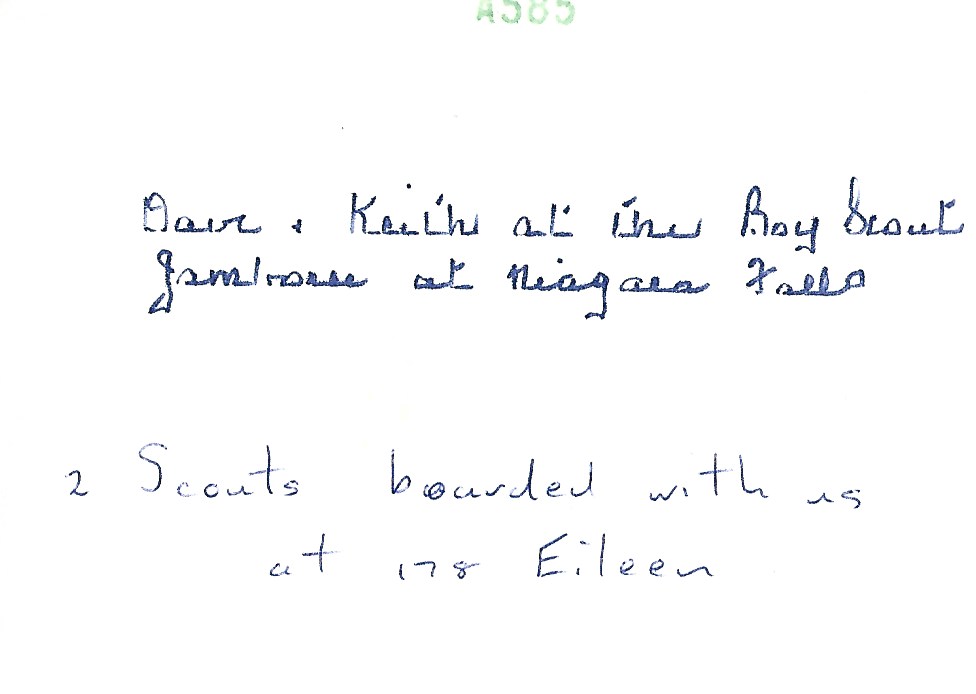 A585
Dave + Keith at the Boy Scout
Jamboree at Niagara Falls
2 Scouts boarded with us
at 178 Eileen